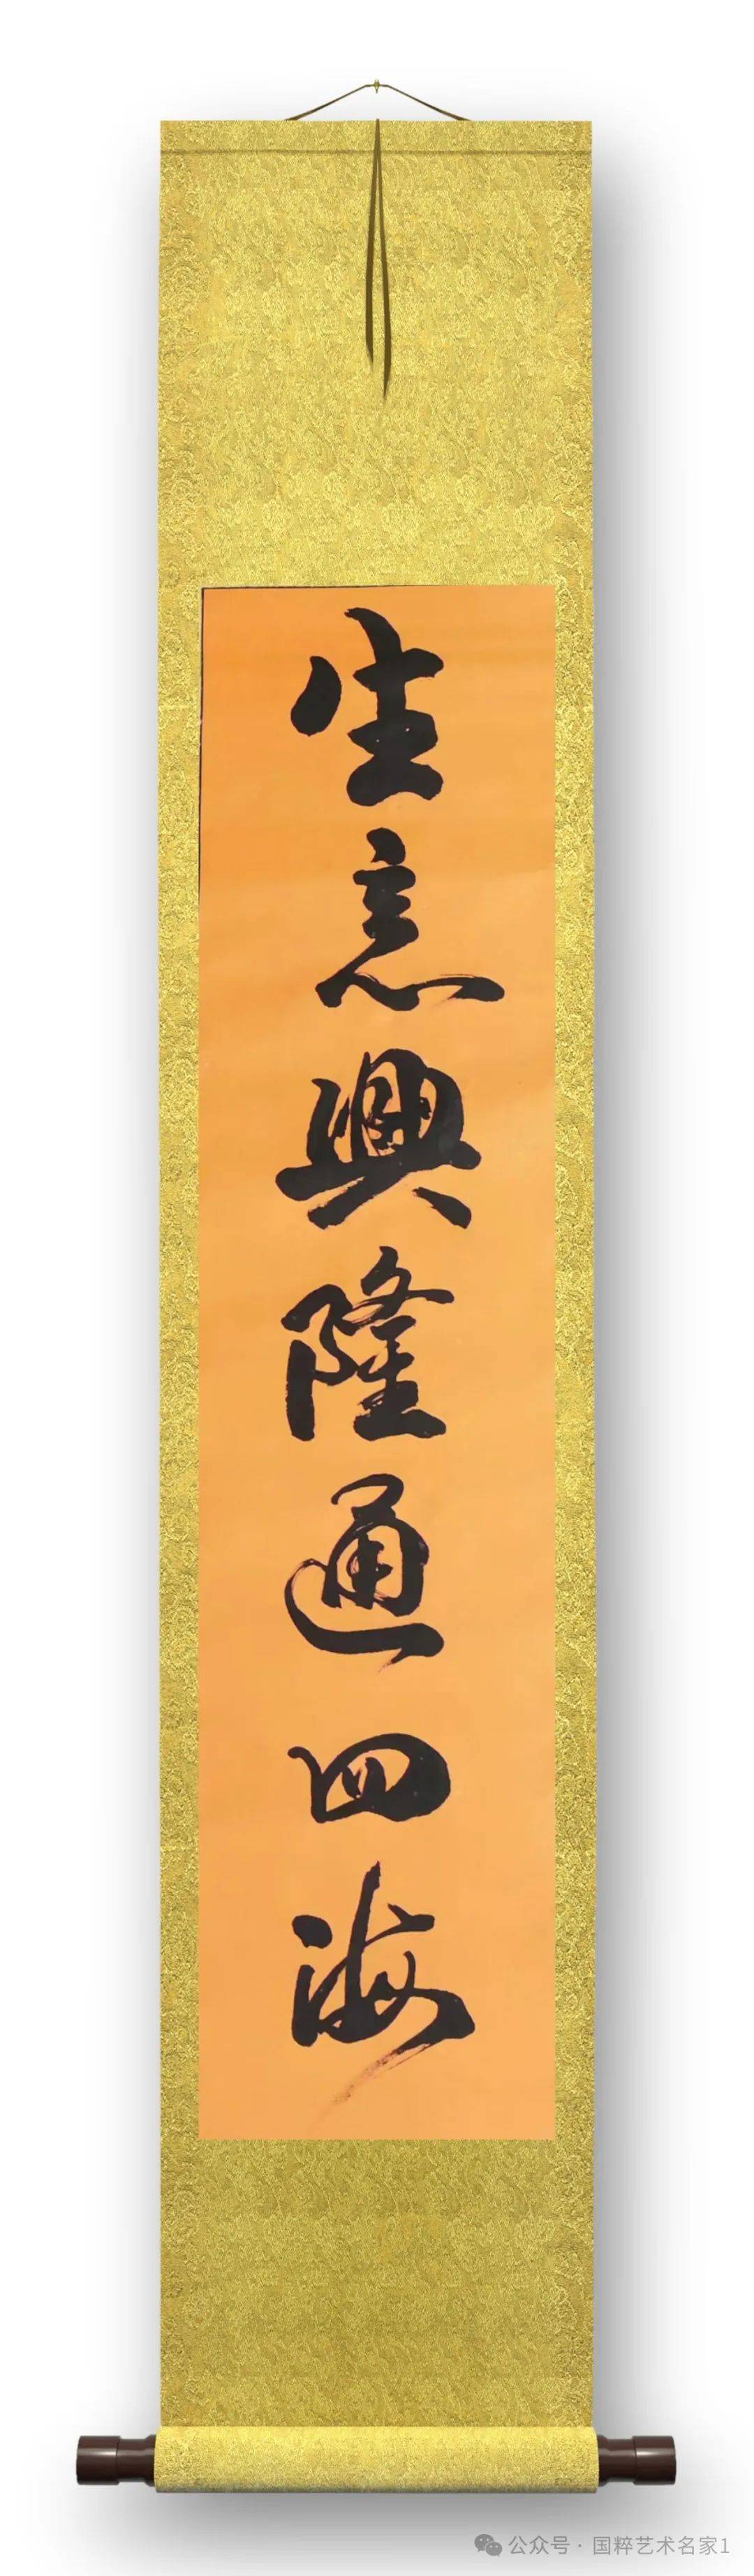 生意興隆通四海
公众号 · 国粹艺术名家1